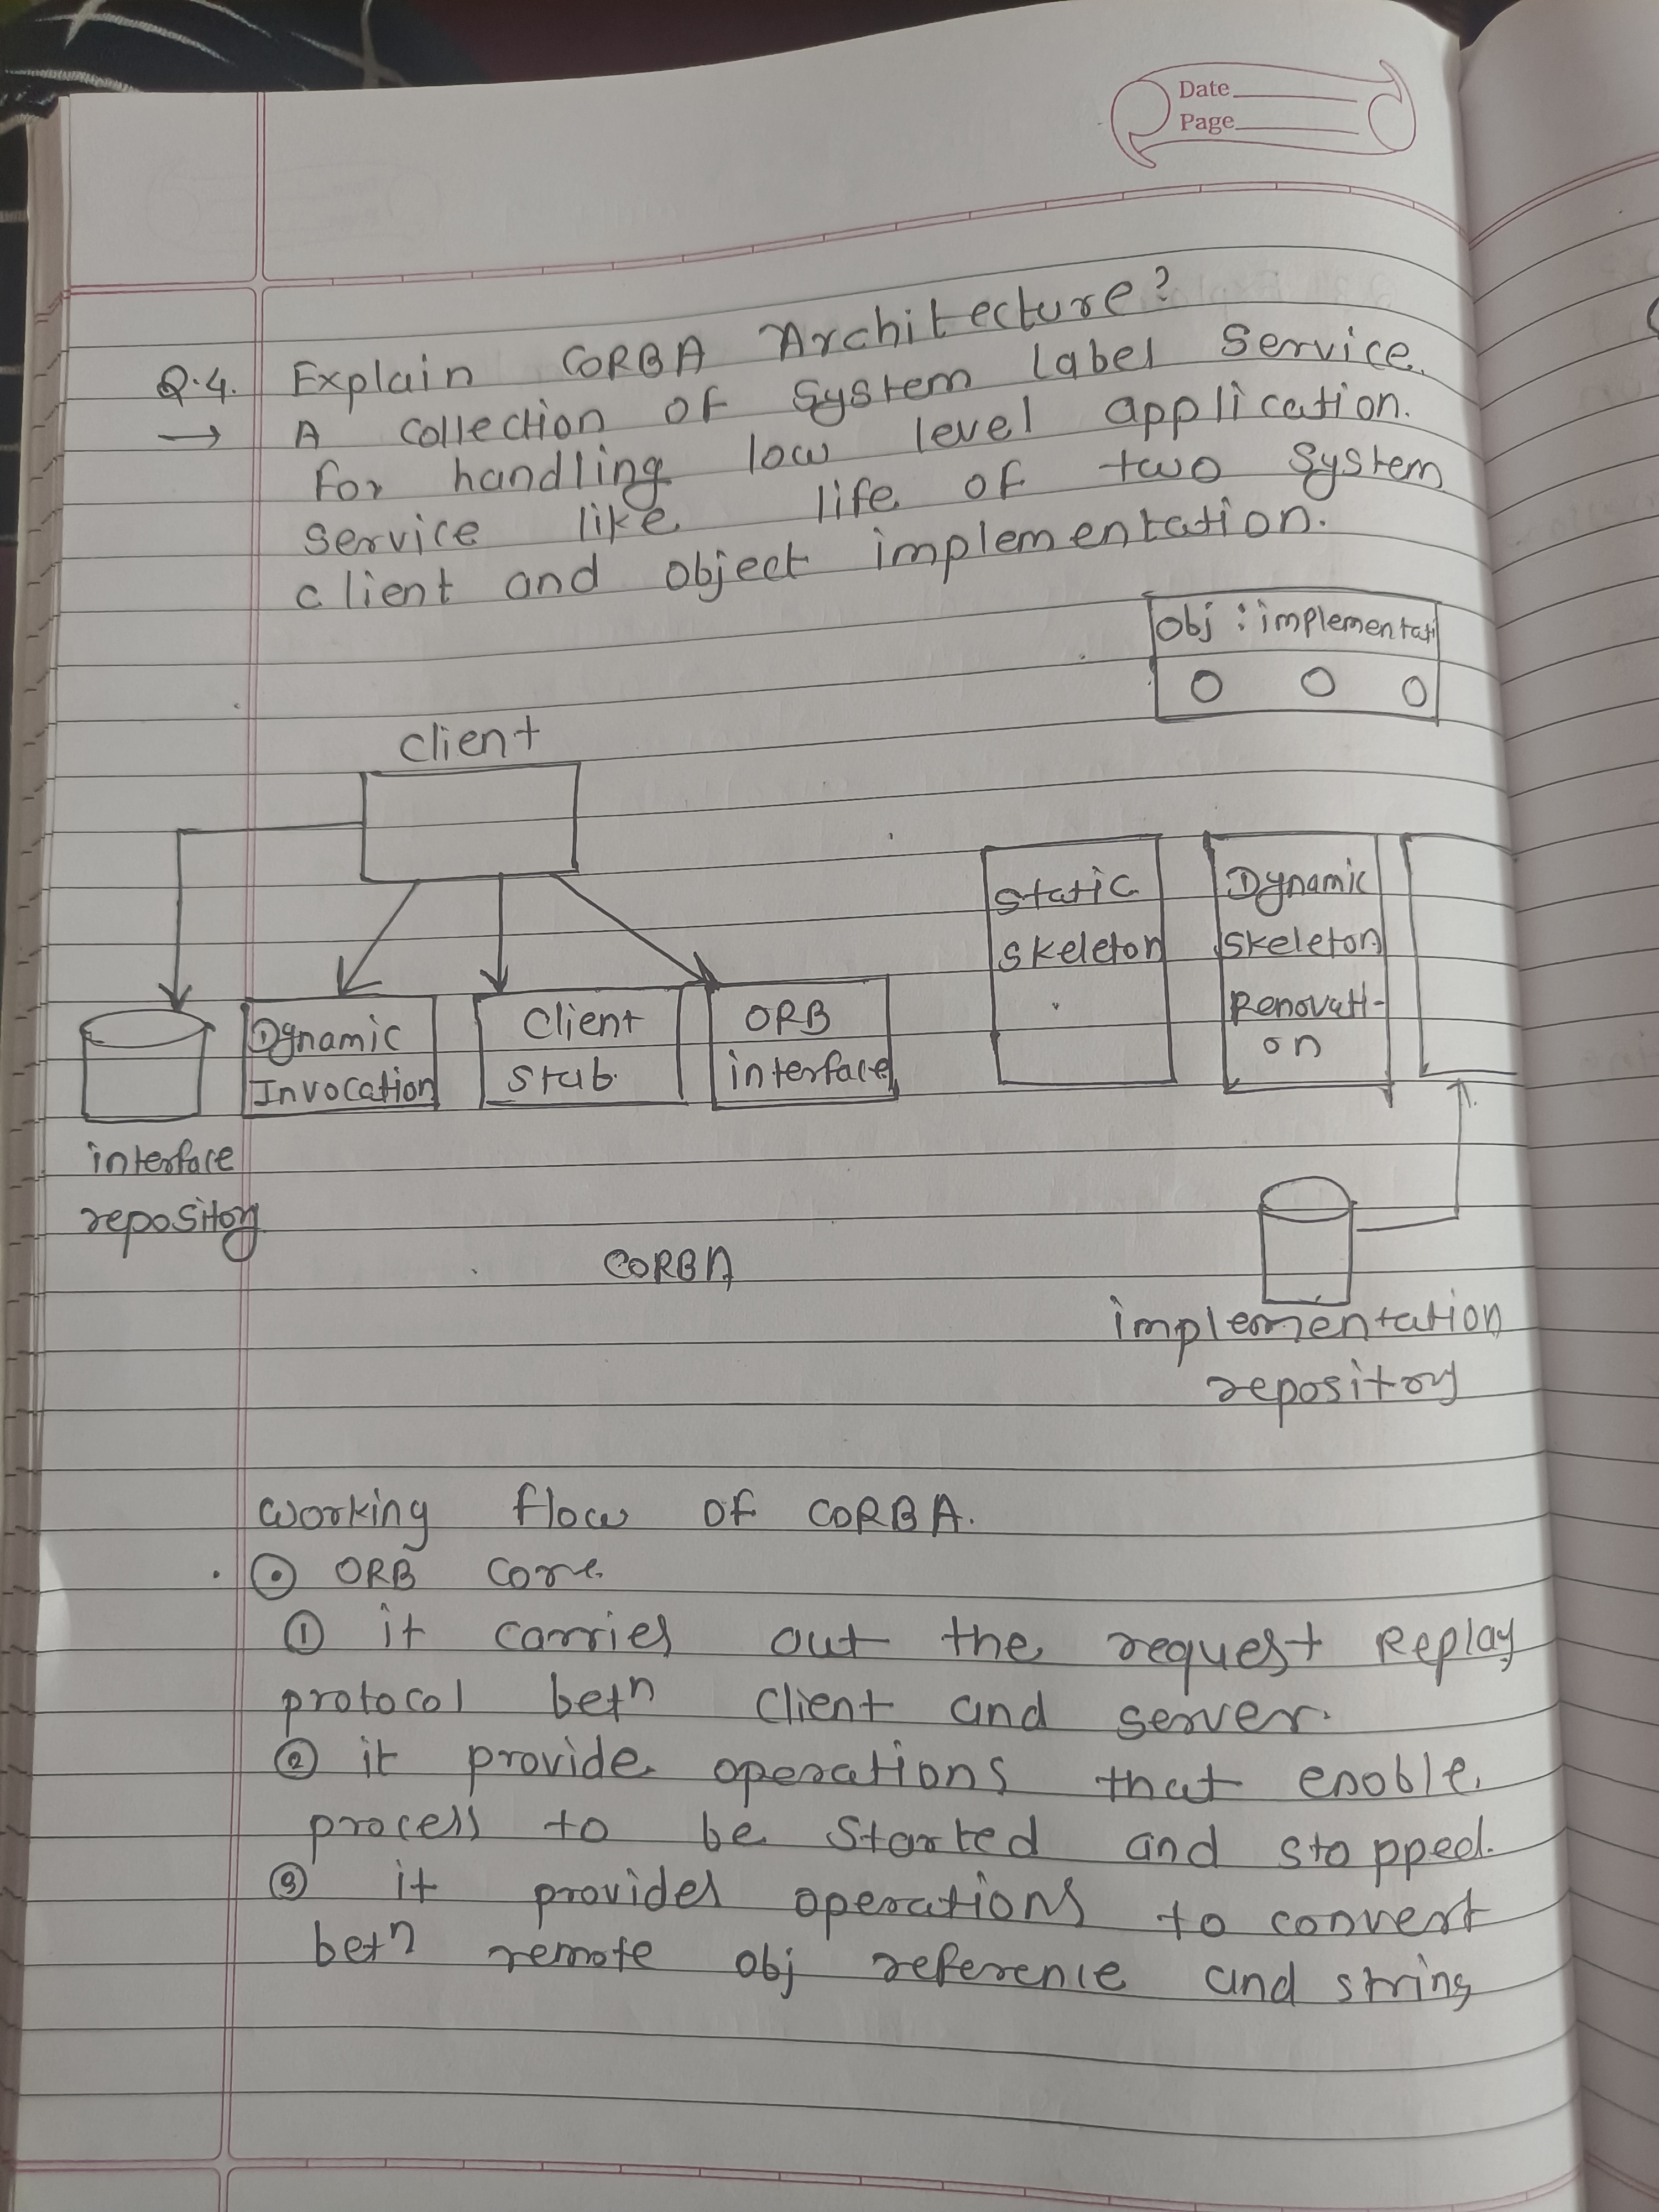 Date
Page
Q.4. Explain CORBA Architecture?
→ A collection of System label Service.
for handling low level application.
service like life of two system
client and object implementation.
Obj : implementati
client
Static
Skeleton
Dynamic
Skeleton
Renovati-
on
Dynamic
Invocation
Client
Stub.
ORB
interface
interface
repository
CORBA
implementation
repository
Working flow of CORBA.
⊙ ORB Core.
① it carries out the request Replay
protocol betn Client and server.
② it provide operations that enoble
process to be Started and stopped.
③ it provides operations to convert
betn remote obj reference and string